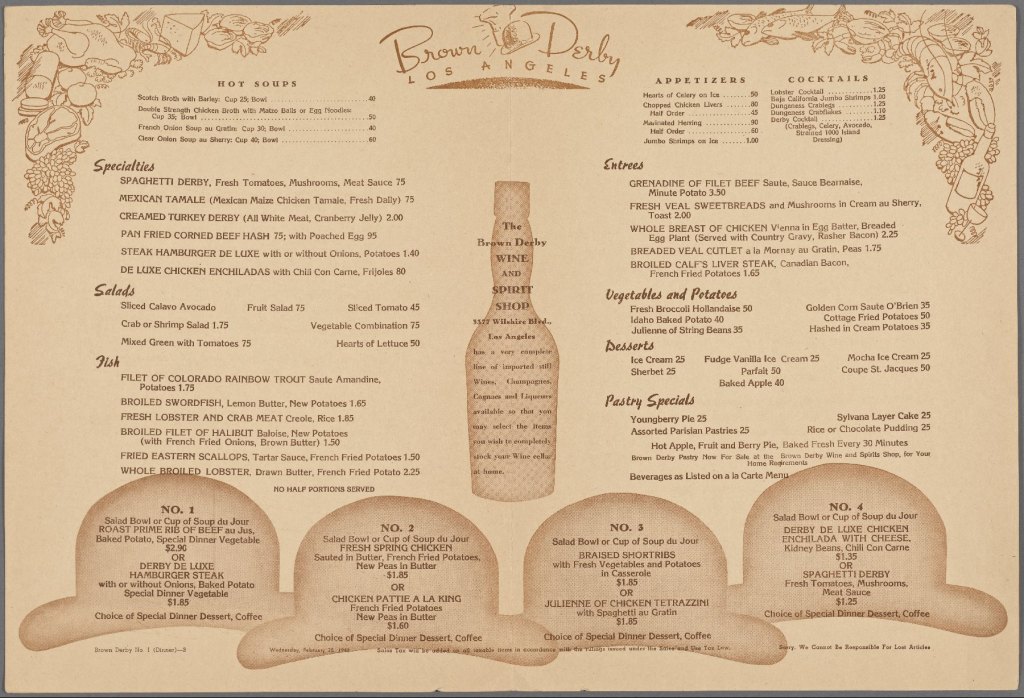 Brown Derby
LOS ANGELES
HOT SOUPS
Scotch Broth with Barley: Cup 25; Bowl .40
Double Strength Chicken Broth with Matzo Balls or Egg Noodles:
Cup 35; Bowl .50
French Onion Soup au Gratin: Cup 30; Bowl .40
Clear Onion Soup au Sherry: Cup 40; Bowl .60
Specialties
SPAGHETTI DERBY, Fresh Tomatoes, Mushrooms, Meat Sauce 75
MEXICAN TAMALE (Mexican Maize Chicken Tamale, Fresh Daily) 75
CREAMED TURKEY DERBY (All White Meat, Cranberry Jelly) 2.00
PAN FRIED CORNED BEEF HASH 75; with Poached Egg 95
STEAK HAMBURGER DE LUXE with or without Onions, Potatoes 1.40
DE LUXE CHICKEN ENCHILADAS with Chili Con Carne, Frijoles 80
Salads
Sliced Calavo Avocado Fruit Salad 75 Sliced Tomato 45
Crab or Shrimp Salad 1.75 Vegetable Combination 75
Mixed Green with Tomatoes 75 Hearts of Lettuce 50
Fish
FILET OF COLORADO RAINBOW TROUT Saute Amandine,
Potatoes 1.75
BROILED SWORDFISH, Lemon Butter, New Potatoes 1.65
FRESH LOBSTER AND CRAB MEAT Creole, Rice 1.85
BROILED FILET OF HALIBUT Baloise, New Potatoes
(with French Fried Onions, Brown Butter) 1.50
FRIED EASTERN SCALLOPS, Tartar Sauce, French Fried Potatoes 1.50
WHOLE BROILED LOBSTER, Drawn Butter, French Fried Potato 2.25
NO HALF PORTIONS SERVED
The
Brown Derby
WINE
AND
SPIRIT
SHOP
3377 Wilshire Blvd.,
Los Angeles
has a very complete
line of imported still
Wines, Champagnes,
Cognacs and Liqueurs
available so that you
may select the items
you wish to completely
stock your Wine cellar
at home.
APPETIZERS
Hearts of Celery on Ice .50
Chopped Chicken Livers .80
Half Order .45
Marinated Herring .90
Half Order .60
Jumbo Shrimps on Ice 1.00
COCKTAILS
Lobster Cocktail 1.25
Baja California Jumbo Shrimps 1.00
Dungeness Crablegs 1.25
Dungeness Crabflakes 1.10
Derby Cocktail 1.25
(Crablegs, Celery, Avocado,
Strained 1000 Island
Dressing)
Entrees
GRENADINE OF FILET BEEF Saute, Sauce Bearnaise,
Minute Potato 3.50
FRESH VEAL SWEETBREADS and Mushrooms in Cream au Sherry,
Toast 2.00
WHOLE BREAST OF CHICKEN Vienna in Egg Batter, Breaded
Egg Plant (Served with Country Gravy, Rasher Bacon) 2.25
BREADED VEAL CUTLET a la Mornay au Gratin, Peas 1.75
BROILED CALF'S LIVER STEAK, Canadian Bacon,
French Fried Potatoes 1.65
Vegetables and Potatoes
Fresh Broccoli Hollandaise 50 Golden Corn Saute O'Brien 35
Idaho Baked Potato 40 Cottage Fried Potatoes 50
Julienne of String Beans 35 Hashed in Cream Potatoes 35
Desserts
Ice Cream 25 Fudge Vanilla Ice Cream 25 Mocha Ice Cream 25
Sherbet 25 Parfait 50 Coupe St. Jacques 50
Baked Apple 40
Pastry Specials
Youngberry Pie 25 Sylvana Layer Cake 25
Assorted Parisian Pastries 25 Rice or Chocolate Pudding 25
Hot Apple, Fruit and Berry Pie, Baked Fresh Every 30 Minutes
Brown Derby Pastry Now For Sale at the Brown Derby Wine and Spirits Shop, for Your
Home Requirements
Beverages as Listed on a la Carte Menu
NO. 1
Salad Bowl or Cup of Soup du Jour
ROAST PRIME RIB OF BEEF au Jus,
Baked Potato, Special Dinner Vegetable
$2.90
OR
DERBY DE LUXE
HAMBURGER STEAK
with or without Onions, Baked Potato
Special Dinner Vegetable
$1.85
Choice of Special Dinner Dessert, Coffee
NO. 2
Salad Bowl or Cup of Soup du Jour
FRESH SPRING CHICKEN
Sauted in Butter, French Fried Potatoes,
New Peas in Butter
$1.85
OR
CHICKEN PATTIE A LA KING
French Fried Potatoes
New Peas in Butter
$1.60
Choice of Special Dinner Dessert, Coffee
NO. 3
Salad Bowl or Cup of Soup du Jour
BRAISED SHORTRIBS
with Fresh Vegetables and Potatoes
in Casserole
$1.85
OR
JULIENNE OF CHICKEN TETRAZZINI
with Spaghetti au Gratin
$1.85
Choice of Special Dinner Dessert, Coffee
NO. 4
Salad Bowl or Cup of Soup du Jour
DERBY DE LUXE CHICKEN
ENCHILADA WITH CHEESE,
Kidney Beans, Chili Con Carne
$1.35
OR
SPAGHETTI DERBY
Fresh Tomatoes, Mushrooms,
Meat Sauce
$1.25
Choice of Special Dinner Dessert, Coffee
Brown Derby No. 1 (Dinner)—B
Wednesday, February 25, Sales Tax will be added to all taxable items in accordance with the rulings issued under the Sales and Use Tax Law.
Sorry, We Cannot Be Responsible For Lost Articles